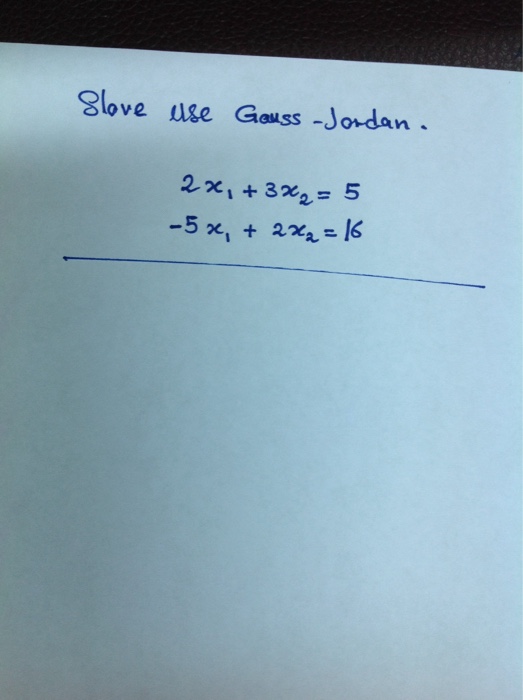 Slove use Gauss-Jordan.
2x₁ + 3x₂ = 5
-5x₁ + 2x₂ = 16